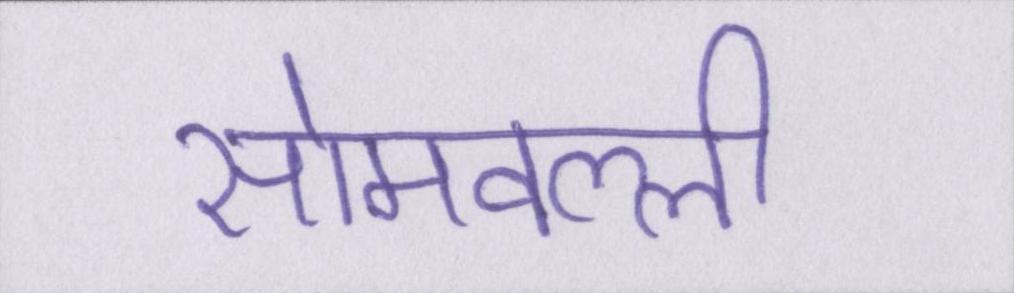 सोमवल्ली